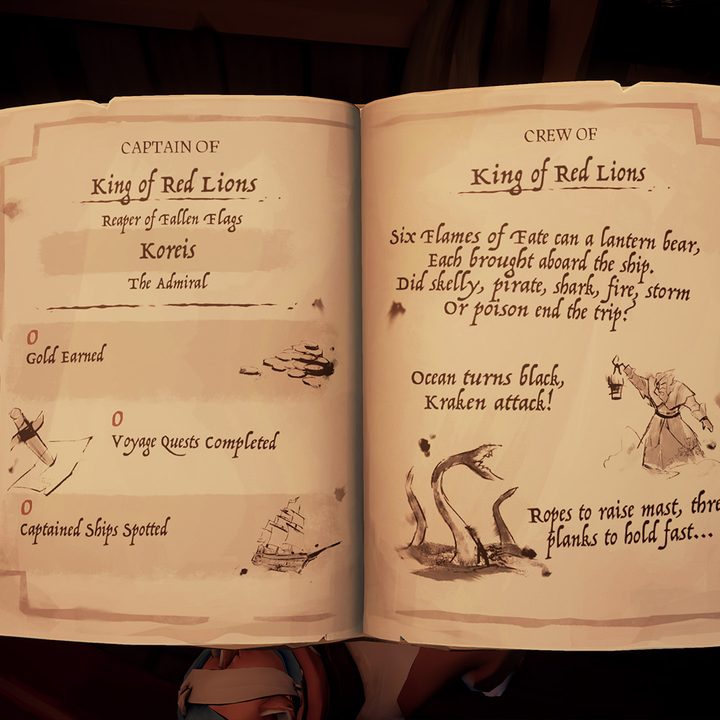 CAPTAIN OF
King of Red Lions
Reaper of Fallen Flags
Koreis
The Admiral
0
Gold Earned
0
Voyage Quests Completed
0
Captained Ships Spotted
CREW OF
King of Red Lions
Six Flames of Fate can a lantern bear,
Each brought aboard the ship.
Did skelly, pirate, shark, fire, storm
Or poison end the trip?
Ocean turns black,
Kraken attack!
Ropes to raise mast, thre
planks to hold fast...